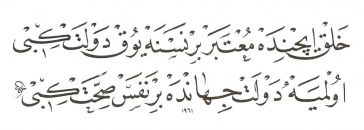 خلق ایچنده معتبر بر نسنه یوق دولت كبی
اولمیه دولت جهانده بر نفس صحت كبی
١٩٦١